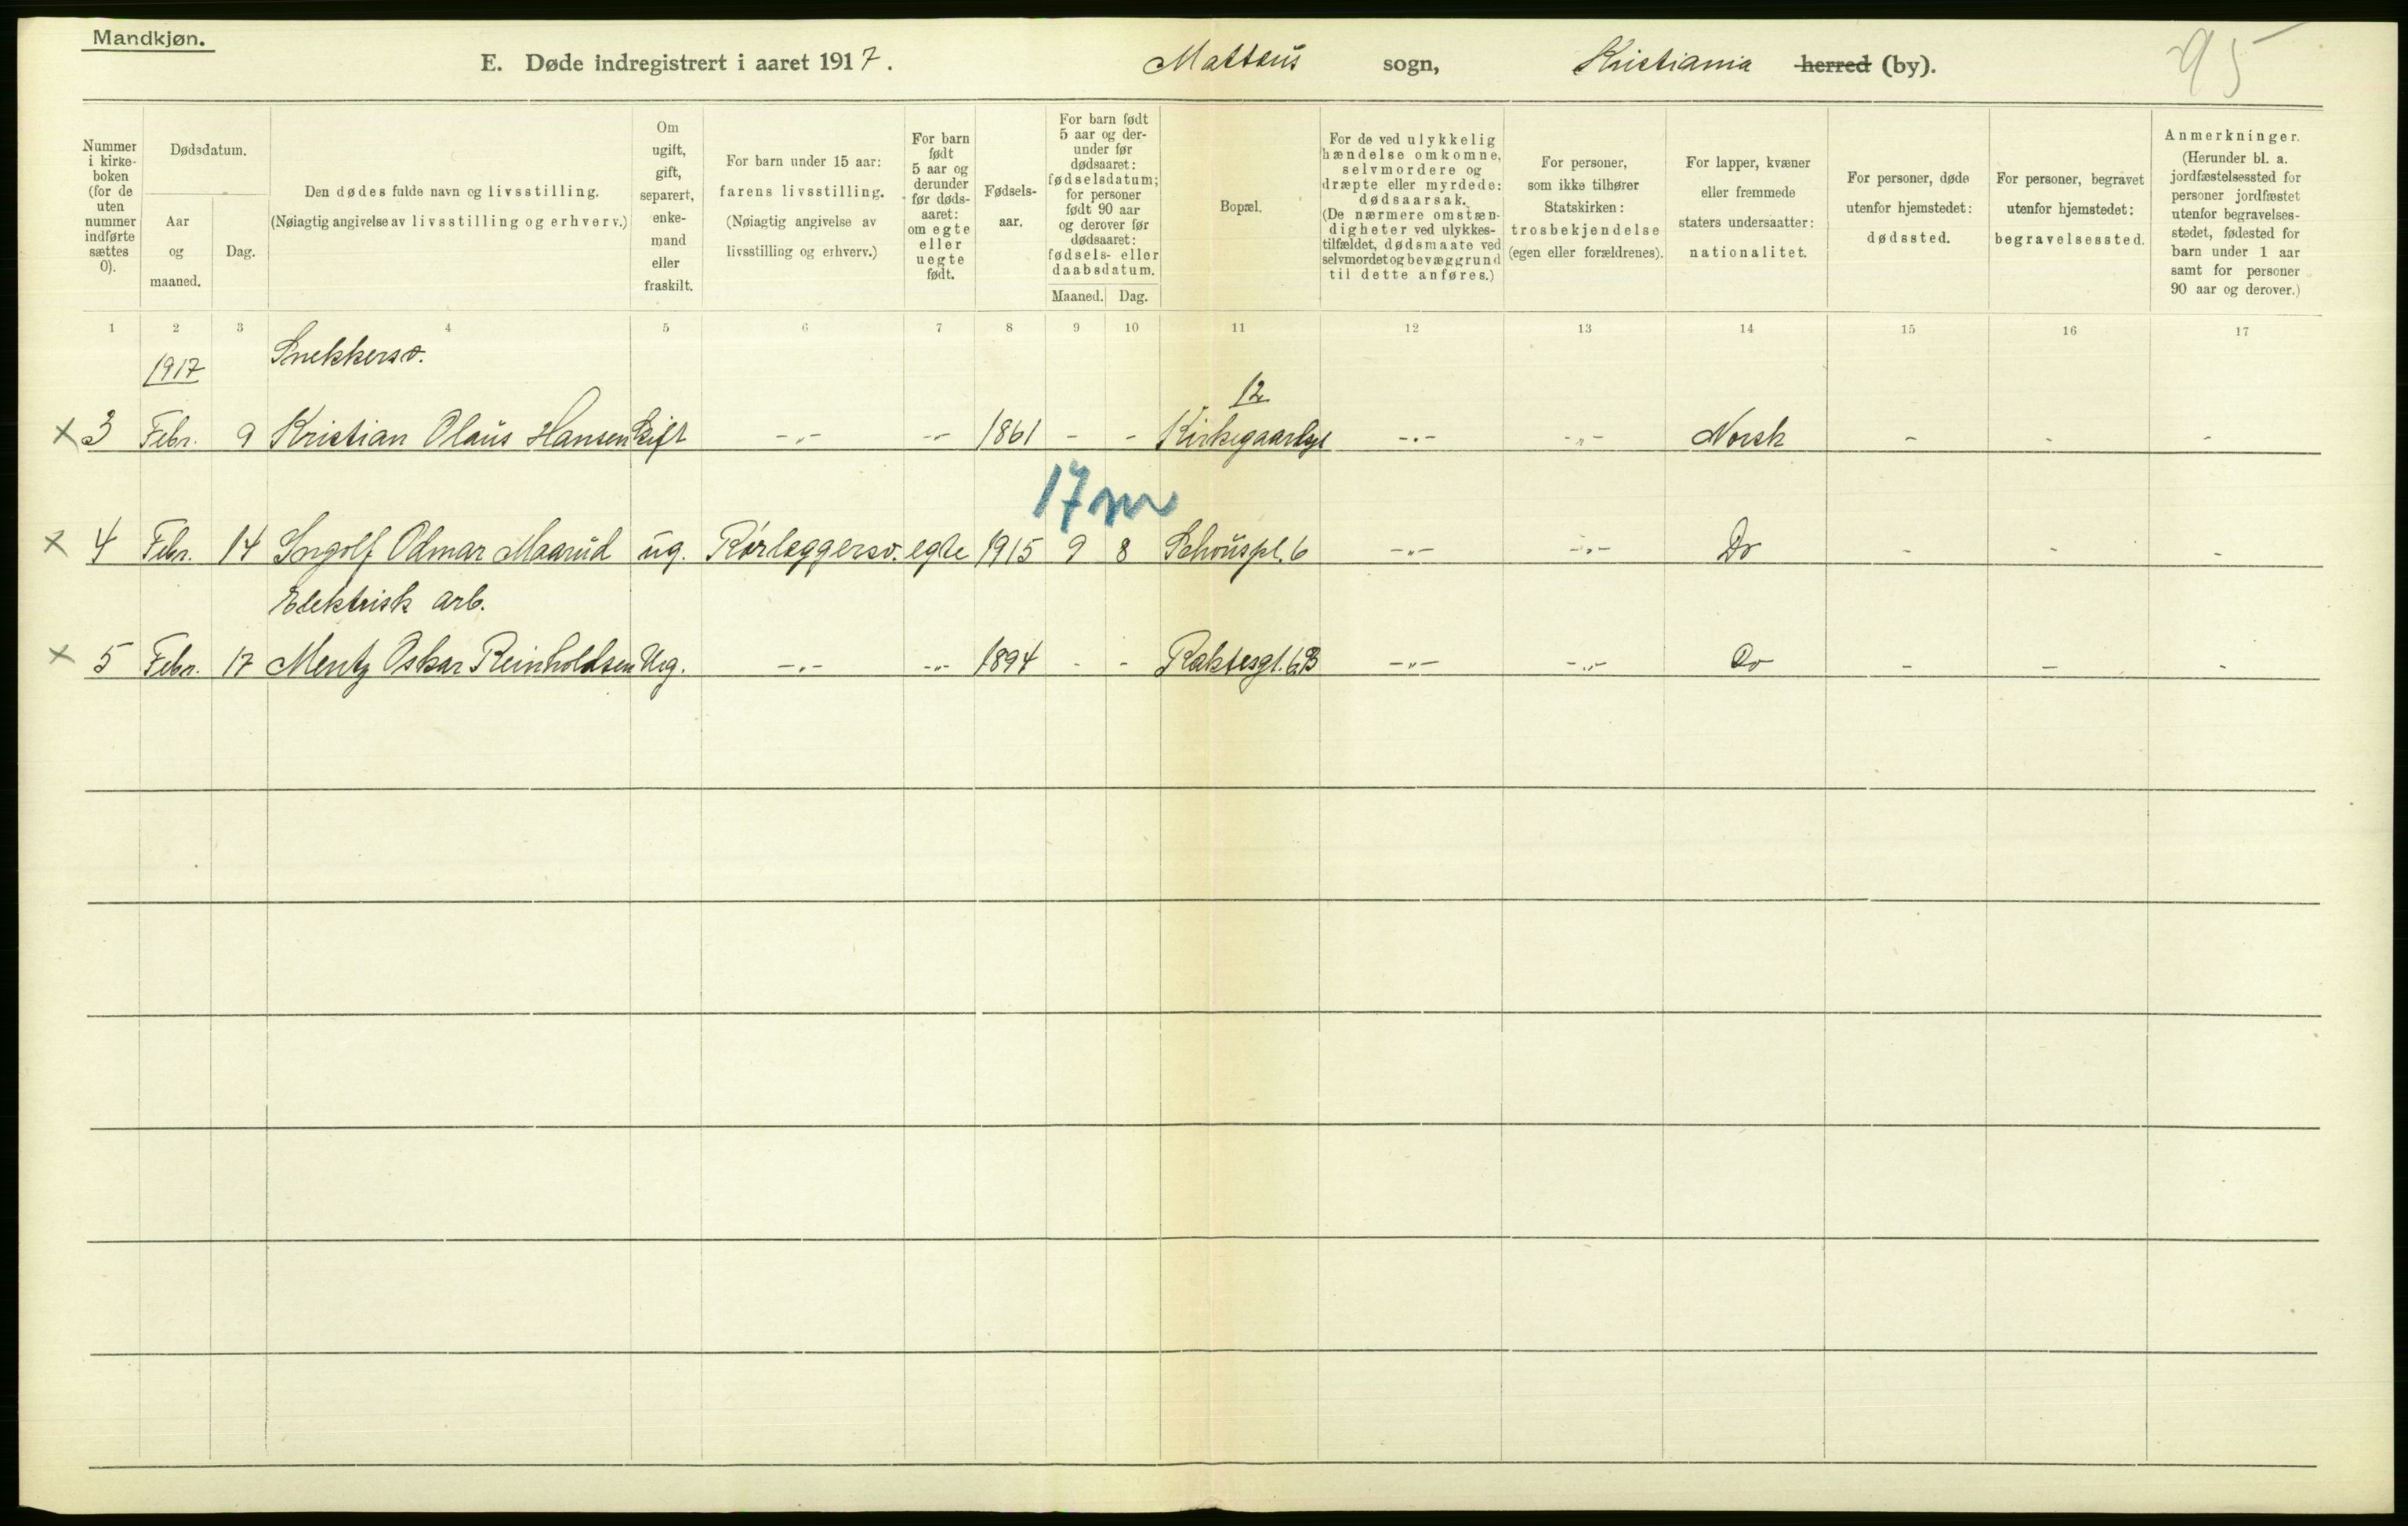 Mandkjøn.
E. Døde indregistrert i aaret 1917. Matteus sogn, Kristiania herred (by).
95
Nummer i kirke- boken (for de uten nummer indførte sættes 0).
Dødsdatum.
Aar og maaned.
Dag.
Den dødes fulde navn og livsstilling.
(Nøiagtig angivelse av livsstilling og erhverv.)
Om ugift, gift, separert, enke- mand eller fraskilt.
For barn under 15 aar: farens livsstilling.
(Nøiagtig angivelse av livsstilling og erhverv.)
For barn født 5 aar og derunder før døds- aaret: om egte eller uegte født.
Fødsels- aar.
For barn født 5 aar og der- under før dødsaaret: fødselsdatum; for personer født 90 aar og derover før dødsaaret: fødsels- eller daabsdatum.
Maaned. Dag.
Bopæl.
For de ved ulykkelig hændelse omkomne, selvmordere og dræpte eller myrdede: dødsaarsak.
(De nærmere omstæn- digheter ved ulykkes- tilfældet, dødsmaate ved selvmordet og bevæggrund til dette anføres.)
For personer, som ikke tilhører Statskirken: trosbekjendelse (egen eller forældrenes).
For lapper, kvæner eller fremmede staters undersaatter: nationalitet.
For personer, døde utenfor hjemstedet: dødssted.
For personer, begravet utenfor hjemstedet: begravelsessted.
Anmerkninger.
(Herunder bl. a. jordfæstelsessted for personer jordfæstet utenfor begravelses- stedet, fødested for barn under 1 aar samt for personer 90 aar og derover.)
1 2 3 4 5 6 7 8 9 10 11 12 13 14 15 16 17
1917 Snekkersv.
12
x 3 Febr. 9 Kristian Olaus Hansen Gift -„- -„- 1861 - - Kirkegaardsgt -„- -„- Norsk - - -
17 m
x 4 Febr. 14 Ingolf Odmar Maarud ug. Rørlæggersv. egte 1915 9 8 Schouspl. 6 -„- -„- Do - - -
Elektrisk arb.
x 5 Febr. 17 Mentz Oskar Reinholdsen Ug. -„- -„- 1894 - - Raktesgt. 6B -„- -„- Do - - -